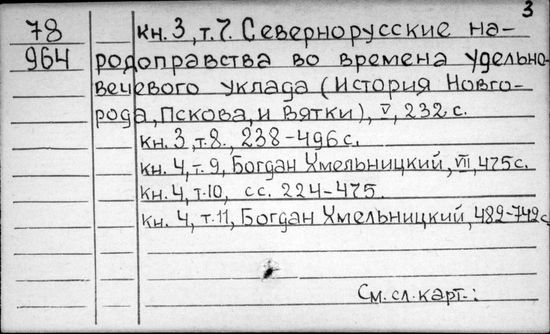 3
78 кн. 3, т. 7. Севернорусские на-
964 родоправства во времена удельно-
вечевого уклада (История Новго-
рода, Пскова, и Вятки), V, 232 с.
кн. 3, т. 8., 238-496 с.
кн. 4, т. 9, Богдан Хмельницкий, VII, 475 с.
кн. 4, т. 10, сс. 224-475.
кн. 4, т. 11, Богдан Хмельницкий, 482-742 с
См. сл. карт.: